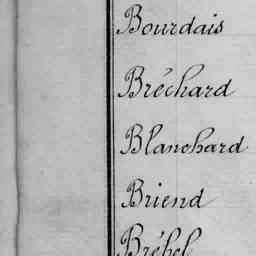 Bourdais
Bréchard
Blanchard
Briend
Bréhel